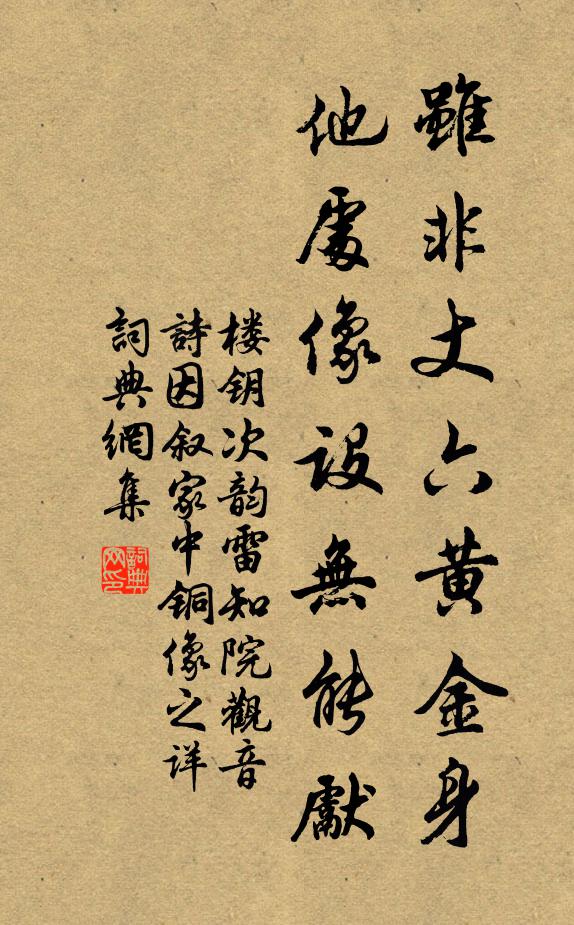 雖非丈六黄金身
他處像設無能獻
楼钥次韵雷知院觀音
詩因叙家中铜像之详
詞典網集
詞典網印